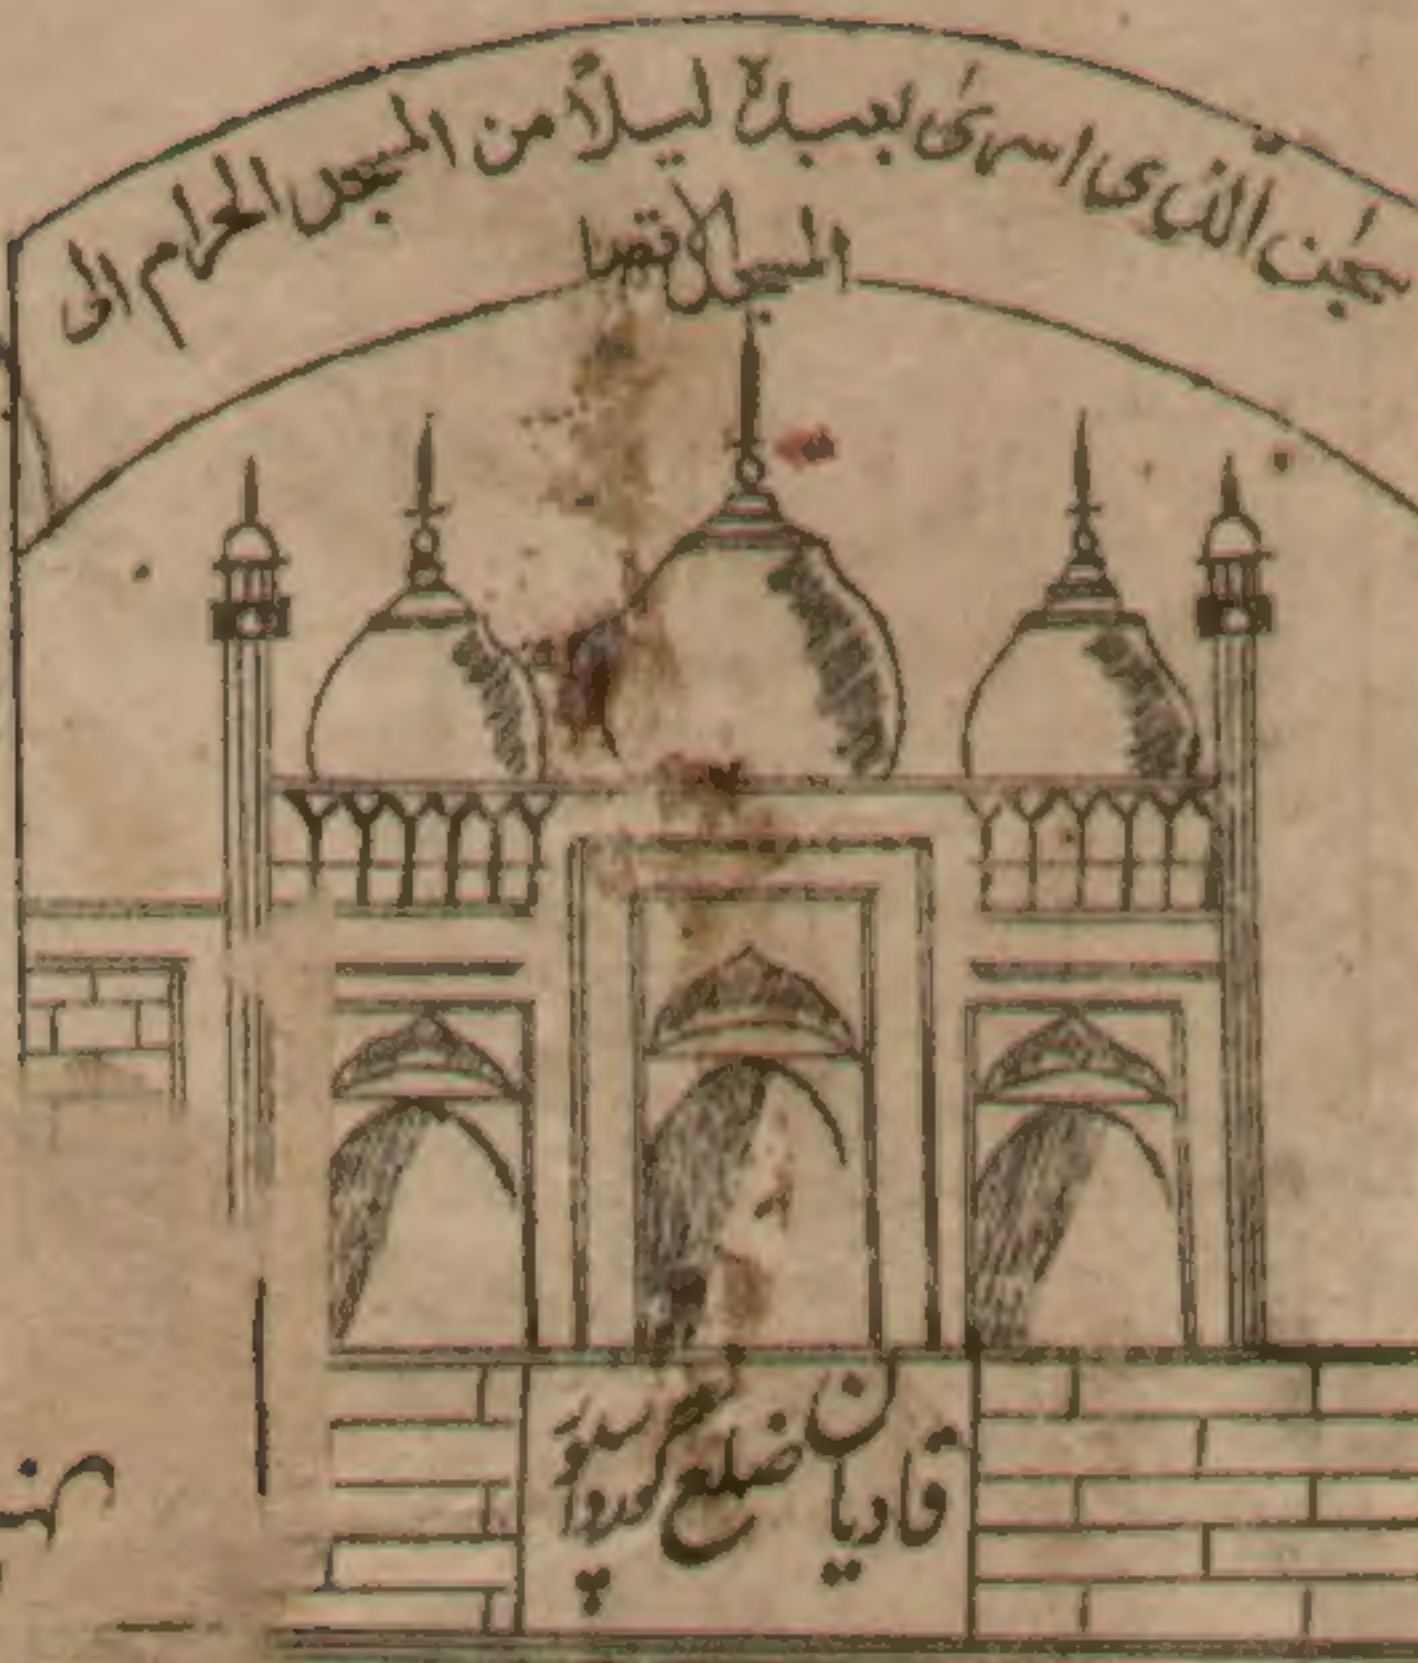 سبحٰن الذی اسریٰ بعبدہٖ لیلاً من المسجد الحرام الی
المسجد الاقصا
قادیان ضلع گورداسپور